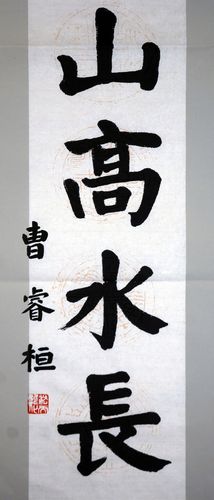 山高水長
曹睿桓